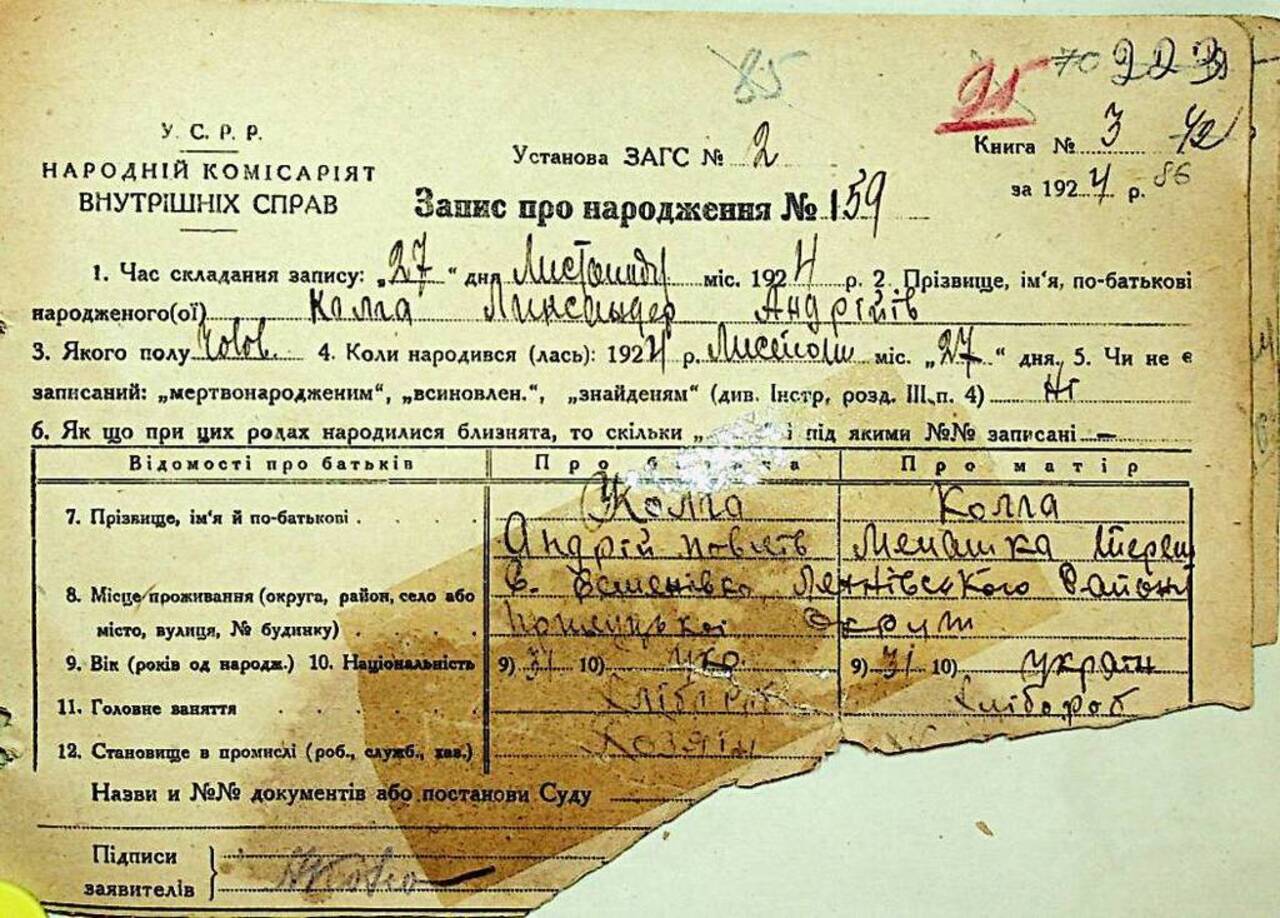 85
25 70 223
У. С. Р. Р.
НАРОДНІЙ КОМІСАРІЯТ
ВНУТРІШНІХ СПРАВ
Установа ЗАГС № 2
Книга № 3 42
за 1924 р. 86
Запис про народження № 159
1. Час складання запису: „27“ дня Листопаду міс. 1924 р. 2. Прізвище, ім'я, по-батькові
народженого(ої) Колга Андріїв
3. Якого полу Чолов. 4. Коли народився (лась): 1924 р. Листоп міс. „27“ дня, 5. Чи не є
записаний: „мертвонародженим“, „всиновлен.“, „знайденям“ (див. Інстр, розд. III, п. 4) Ні
6. Як що при цих родах народилися близнята, то скільки „ і під якими №№ записані —
Відомості про батьків Про батька Про матір
7. Прізвище, ім'я й по-батькові Колга Колга
Андрій
8. Місце проживання (округа, район, село або С. Району
місто, вулиця, № будинку) Округи
9. Вік (років од народж.) 10. Національність 9) 31 10) укр. 9) 31 10) україн
11. Головне заняття Хлібороб Хлібороб
12. Становище в промислі (роб., служб., хаз.) Хозяїн
Назви и №№ документів або постанови Суду
Підписи
заявителів